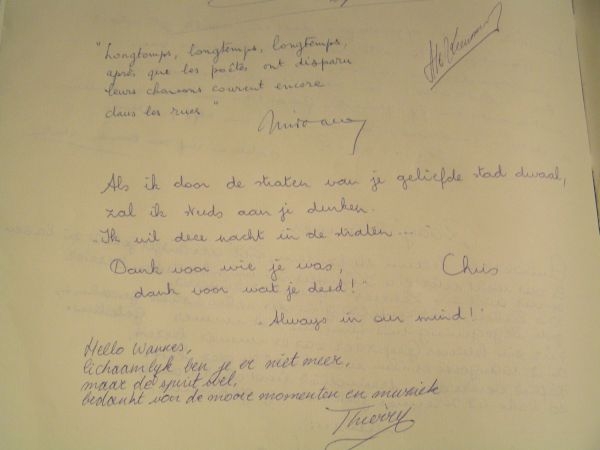 "Longtemps, longtemps, longtemps,
après que les poètes ont disparu
leurs chansons courent encore
dans les rues."
Als ik door de straten van je geliefde stad dwaal,
zal ik steeds aan je denken.
"Ik wil deze nacht in de straten...
Dank voor wie je was,
Chris
dank voor wat je deed!"
"Always in our mind!"
Hello Wannes,
lichaamlyk ben je er niet meer,
maar de spirit wel,
bedankt voor de mooie momenten en muziek
Thierry